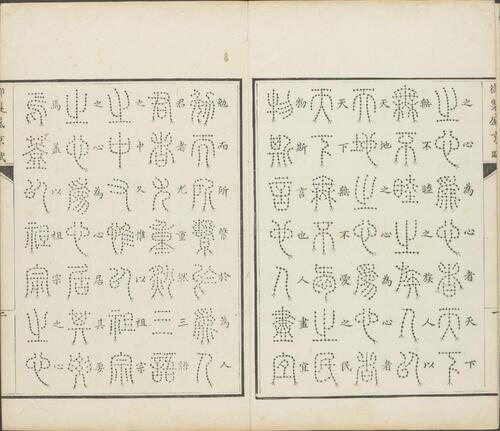 御製盛京賦
之心為心者天下
無不睦之族人以
天地之心為心者
天下無不愛之民
物斯言也人盡宜
勉而所繫於為人
君者尤重然三語
之中又惟以祖宗
之心為心居其要
焉蓋以祖宗之心
御製盛京賦